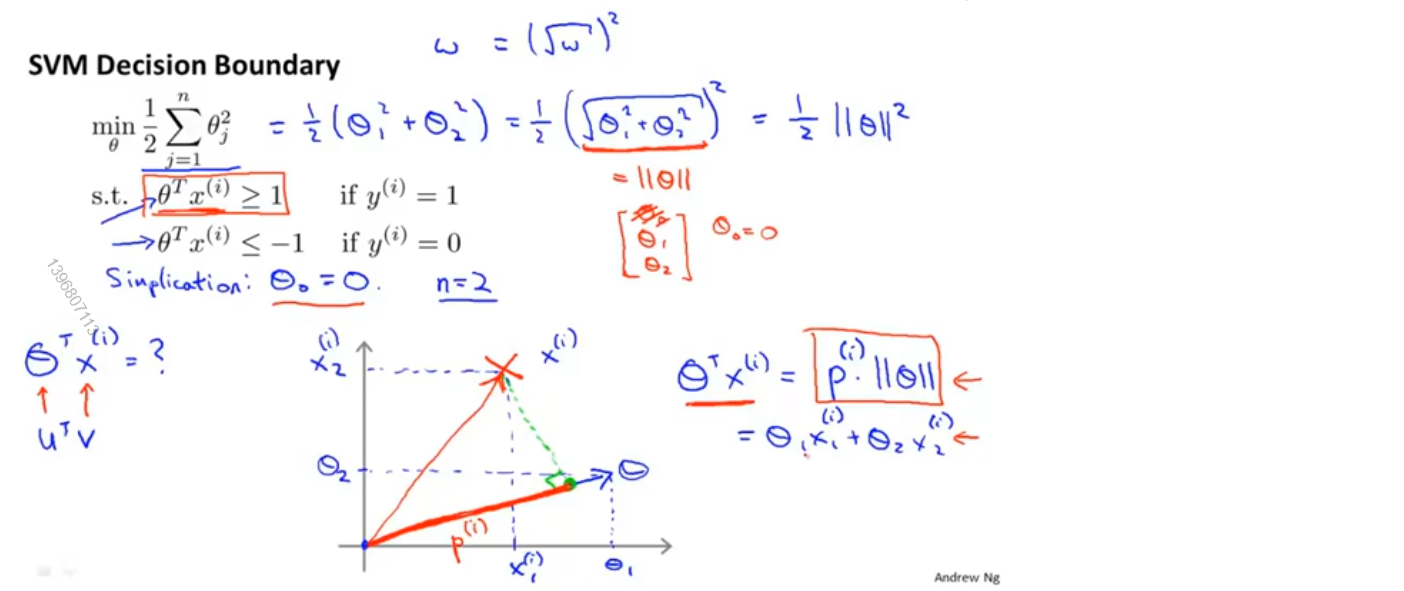 ω = (√ω)²
SVM Decision Boundary
min_θ 1/2 ∑_{j=1}^{n} θ_j² = 1/2 (Θ₁² + Θ₂²) = 1/2 (√(Θ₁² + Θ₂²))² = 1/2 ||Θ||²
= ||Θ||
s.t. θᵀx⁽ⁱ⁾ ≥ 1 if y⁽ⁱ⁾ = 1
→ θᵀx⁽ⁱ⁾ ≤ −1 if y⁽ⁱ⁾ = 0
[Θ₁ Θ₂] Θ₀ = 0
Simplication: Θ₀ = 0. n = 2
13968071113
Θᵀx⁽ⁱ⁾ = ?
↑ ↑
uᵀv
x₂⁽ⁱ⁾
x⁽ⁱ⁾
Θ₂
Θ
p⁽ⁱ⁾
x₁⁽ⁱ⁾
Θ₁
Θᵀx⁽ⁱ⁾ = p⁽ⁱ⁾ · ||Θ|| ←
= Θ₁x₁⁽ⁱ⁾ + Θ₂x₂⁽ⁱ⁾ ←
Andrew Ng